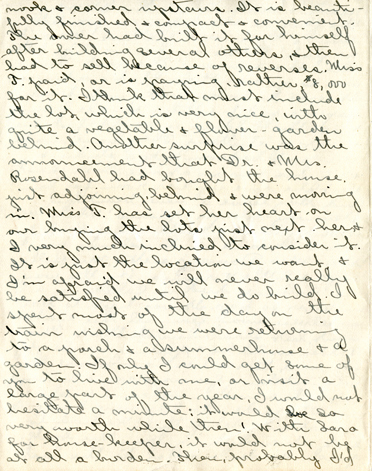 nook & corner upstairs. It is beauti-
fully finished & compact & convenient.
The owner had built it for himself
after building several others, & then
had to sell because of reverses. Miss
T. paid, or is paying, rather, $8,000
for it. I think that must include
the lot, which is very nice, with
quite a vegetable & flower-garden
behind. Another surprise was the
announcement that Dr. & Mrs.
Rosendahl had bought the house
just adjoining behind & were moving
in. Miss T. has set her heart on
our buying the lots just next her &
I very much inclined to consider it.
It is just the location we want &
I'm afraid we will never really
be satisfied until we do build. I
spent most of the day on the
train wishing we were returning
to a porch & a summerhouse & a
garden. If only I could get some of
you to live with me, or visit a
large part of the year, I would not
hesitate a minute; it would be so
very worth while then! With Sara
for house-keeper, it would not be
at all a burden. Then, probably I'd